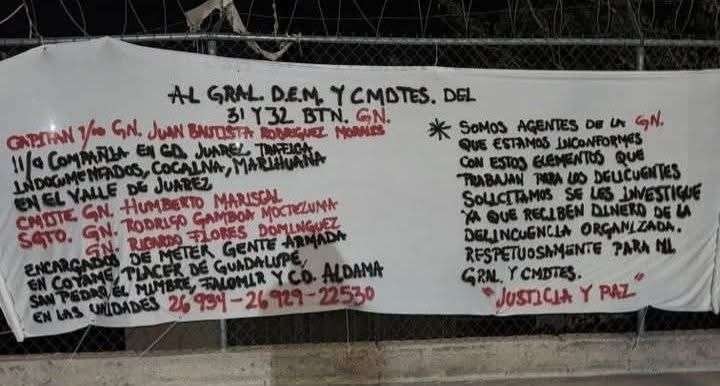 AL GRAL. D.E.M. Y CMDTES. DEL
31 Y 32 BTN. GN.
CAPITAN 1/00 GN. JUAN BAUTISTA RODRIGUEZ MORALES
11/a COMPAÑIA EN CD. JUAREZ TRAFICA
INDOCUMENTADOS, COCAINA, MARIHUANA
EN EL VALLE DE JUAREZ
CMDTE GN. HUMBERTO MARISCAL
SGTO. GN. RODRIGO GAMBOA MOCTEZUMA
GN. RICARDO FLORES DOMINGUEZ
ENCARGADOS DE METER GENTE ARMADA
EN COYAME, PLACER DE GUADALUPE,
SAN PEDRO, EL MIMBRE, FALOMIR Y CD. ALDAMA
EN LAS UNIDADES 26994-26929-22530
* SOMOS AGENTES DE LA GN.
QUE ESTAMOS INCONFORMES
CON ESTOS ELEMENTOS QUE
TRABAJAN PARA LOS DELICUENTES
SOLICITAMOS SE LES INVESTIGUE
YA QUE RECIBEN DINERO DE LA
DELINCUENCIA ORGANIZADA.
RESPETUOSAMENTE PARA MI
GRAL. Y CMDTES.
"JUSTICIA Y PAZ"